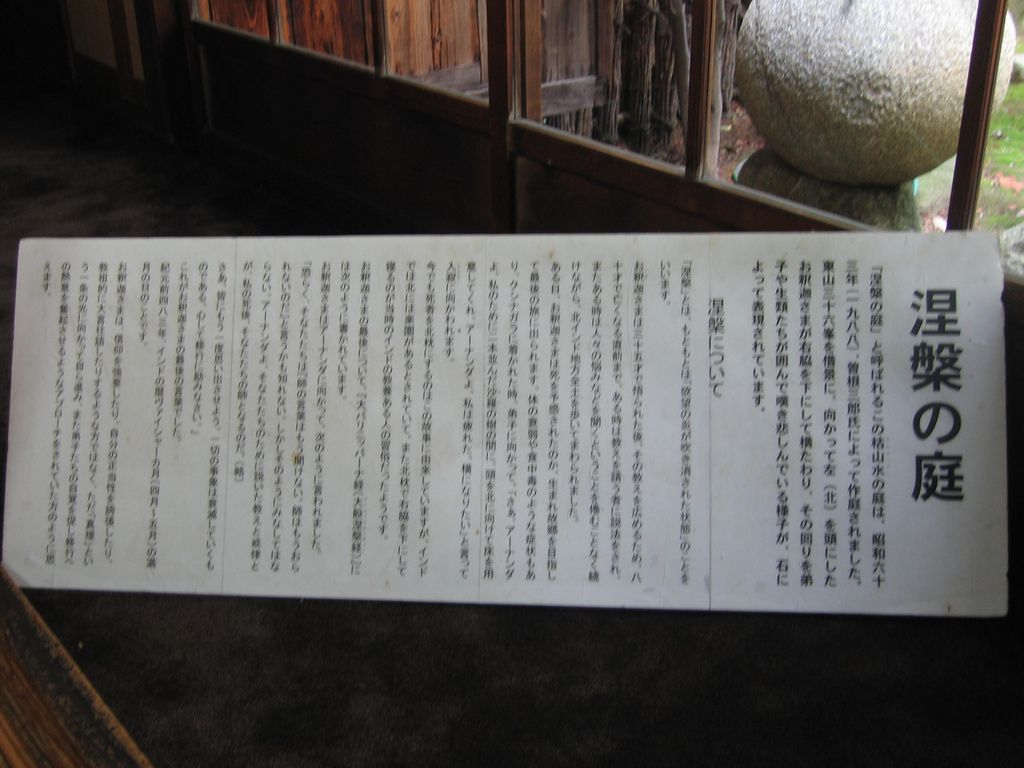 涅槃の庭
「涅槃の庭」と呼ばれるこの枯山水の庭は、昭和六十
三年(一九八八)、曽根三郎氏によって作庭されました。
東山三十六峯を借景に、向かって左(北)を頭にした
お釈迦さまが右脇を下にして横たわり、その回りを弟
子や生類たちが囲んで嘆き悲しんでいる様子が、石に
よって表現されています。
涅槃について
「涅槃」とは、もともとは「煩悩の炎が吹き消された状態」のことを
いいます。
お釈迦さまは三十五才で悟られた後、その教えを広めるため、八
十才で亡くなる直前まで、ある時は教えを請う者に説法をされ、
またある時は人々の悩みなどを聞くということを倦むことなく続
けながら、北インド地方全域を歩いてまわられました。
ある日、お釈迦さまは死を予感されたのか、生まれ故郷を目指し
て最後の旅に出られます。体の衰弱や食中毒のような症状もあ
り、クシナガラに着かれた時、弟子に向かって、「さあ、アーナンダ
よ。私のために二本並んだ沙羅の樹の間に、頭を北に向けて床を用
意してくれ。アーナンダよ。私は疲れた。横になりたい」と言って
入滅に向かわれます。
今でも死者を北枕にするのはこの故事に由来していますが、インド
では北には楽園があるとされていて、また北枕で右脇を下にして
寝るのが当時のインドの教養ある人の習慣だったようです。
お釈迦さまの最後について、『大パリニッバーナ経』(大般涅槃経)に
は次のように書かれています。
お釈迦さまはアーナンダに向かって、次のように言われました。
「恐らく、そなたたちは『師の言葉はもう聞けない、師はもうおら
れないのだ』と言うかも知れない。しかしそのようにみなしてはな
らない。アーナンダよ。そなたたちのために説いた教えと戒律と
が、私の死後、そなたたちの師となるのだ。(略)
さあ、皆にもう一度思い出させよう。『一切の事象は衰滅していくも
のである。心して修行に励みなさい。』」
これがお釈迦さまの最後の言葉でした。
紀元前四八三年、インドの暦のヴァイシャーカ月(四月〜五月)の満
月の日のことです。
お釈迦さまは、信仰を強要したり、自分の正当性を誇張したり、
教祖的に大言壮語したりするような方ではなく、ただ「真理」とい
う一条の光に向かって自ら進み、また弟子たちの自覚を促し修行へ
の熱意を奮起させるようなアプローチをされていた方のように思
えます。